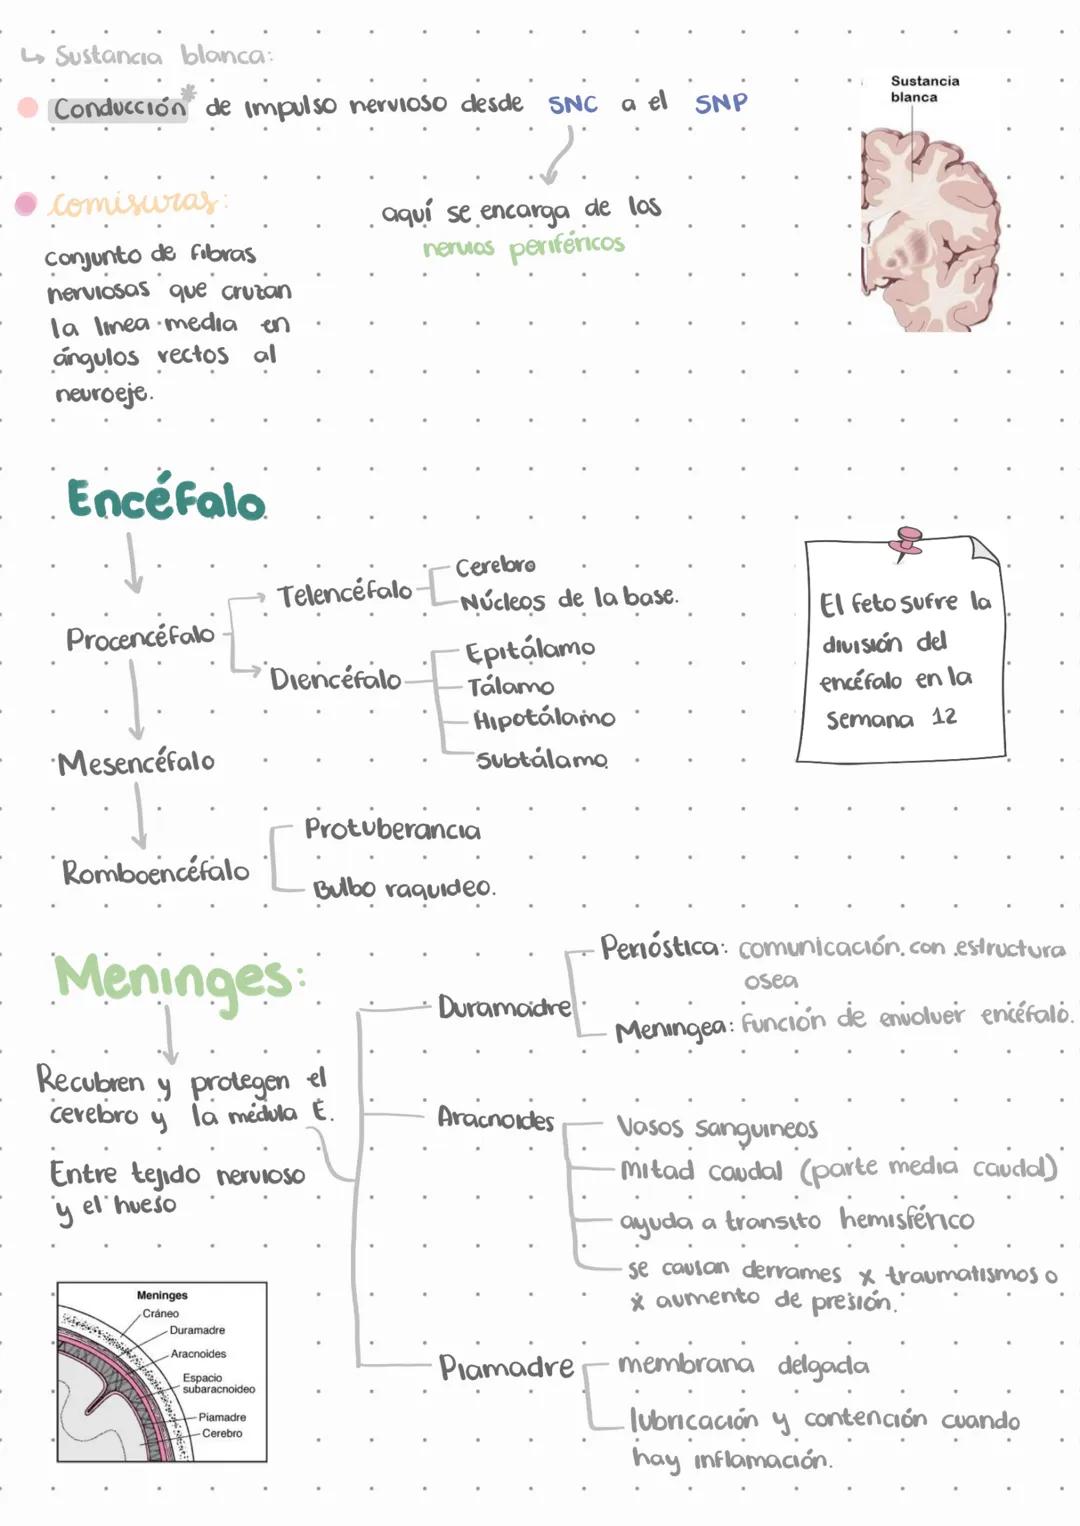 ↳ Sustancia blanca:
Conducción* de impulso nervioso desde SNC a el SNP
aquí se encarga de los
nervios periféricos
Sustancia
blanca
Comisuras:
conjunto de fibras
nerviosas que cruzan
la linea media en
ángulos rectos al
neuroeje.
Encéfalo
Procencéfalo
Telencéfalo
Cerebro
Núcleos de la base.
Diencéfalo
Epitálamo
Tálamo
Hipotálamo
Subtálamo
Mesencéfalo
Romboencéfalo
Protuberancia
Bulbo raquideo.
El feto sufre la
división del
encéfalo en la
Semana 12
Meninges:
Recubren y protegen el
cerebro y la médula E.
Entre tejido nervioso
y el hueso
Duramadre
Perióstica: comunicación con estructura
osea
Meningea: función de envolver encéfalo.
Aracnoides
Vasos sanguineos
Mitad caudal (parte media caudal)
ayuda a transito hemisférico
se causan derrames x traumatismos o
x aumento de presión.
Piamadre
membrana delgada
lubricación y contención cuando
hay inflamación.
Meninges
Cráneo
Duramadre
Aracnoides
Espacio
subaracnoideo
Piamadre
Cerebro